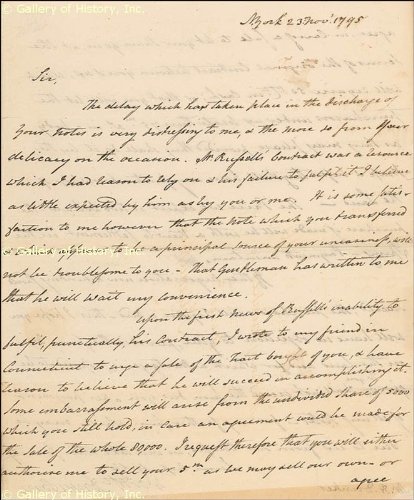 © Gallery of History, Inc.
NYork 23 Novr. 1795
Sir,
The delay which has taken place in the discharge of
your Notes is very distressing to me, & the more so from your
delicacy on the occasion. Mr Russells Contract was a resource
which I had reason to rely on & his failure to fulfil it I believe
as little expected by him as by you or me. It is some satis-
faction to me however that the Note which you transferred
to be a principal source of your uneasiness, will
not be troublesome to you – That Gentleman has written to me
that he will wait my convenience.
Upon the first news of Russells inability to
fulfil, punctually, his contract, I wrote to my friend in
Connecticut to urge a sale of the tract bought of you, & have
reason to believe that he will succeed in accomplishing it.
Some embarrassment will arise from the undivided share of 5000
which you still hold, in case an agreement would be made for
the Sale of the whole 80000. I request therefore that you will either
authorise me to sell your 5m as we may sell our own – or
agree
© Gallery of History, Inc.